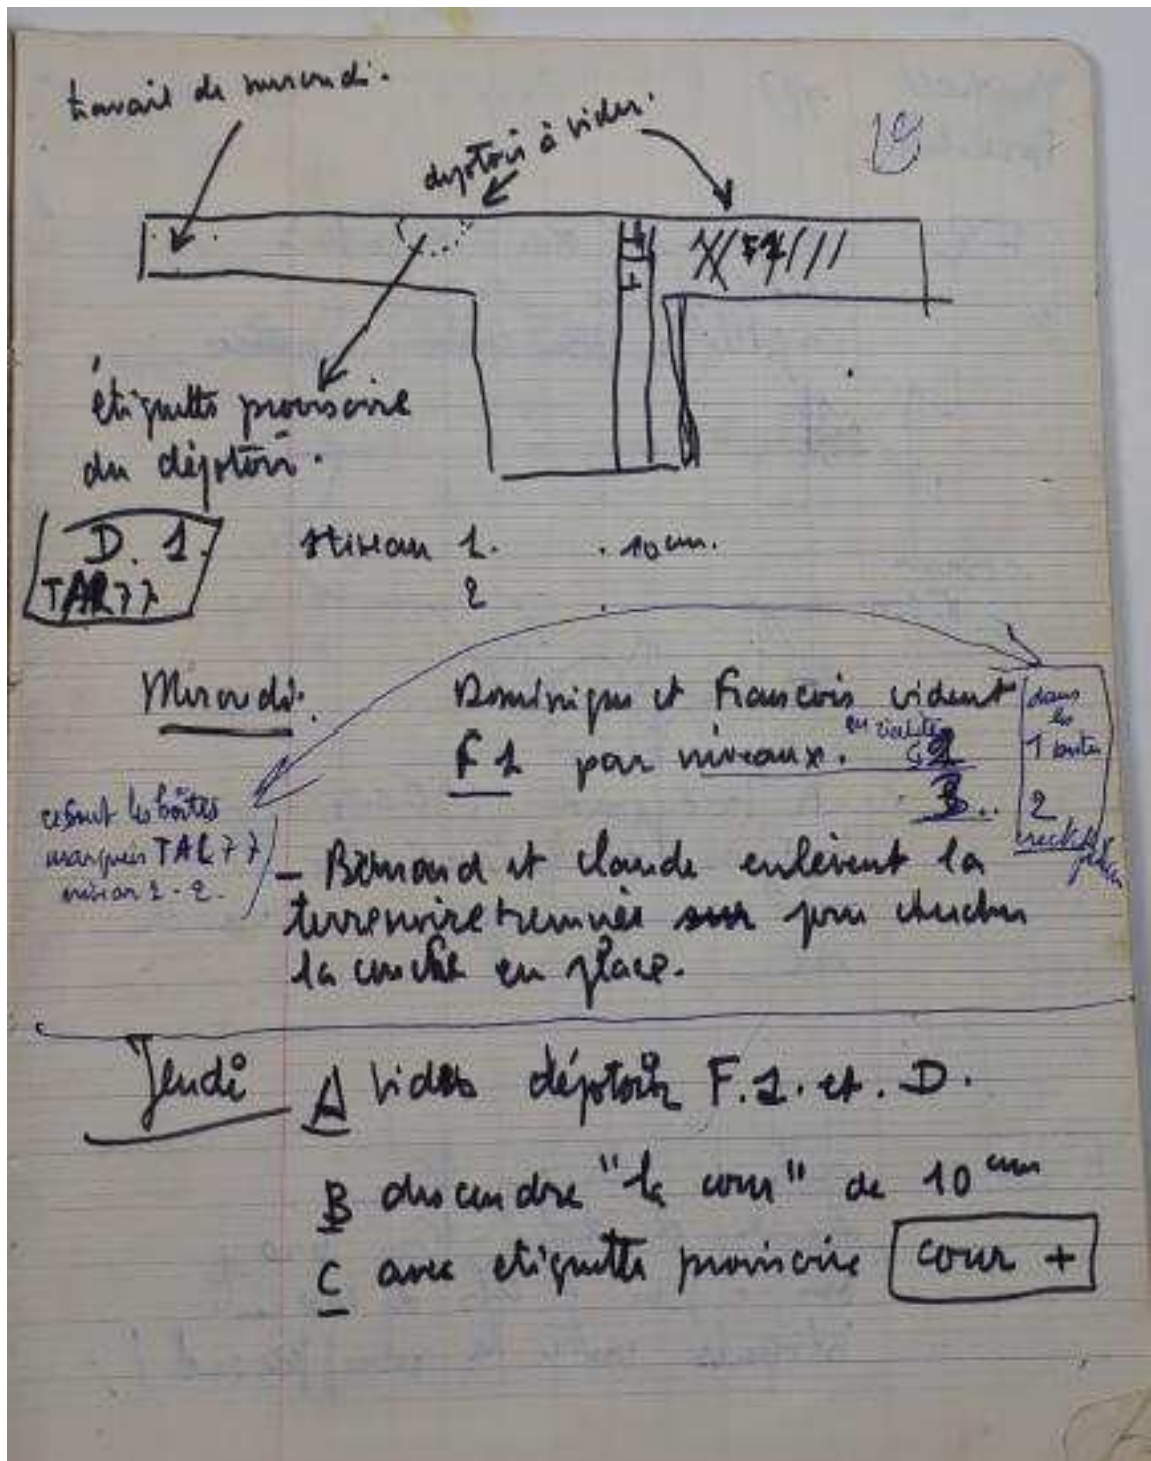 travail de mercredi.
dépotoir à vider.
F1
étiquette provisoire
du dépotoir.
D. 1.
TAL77
Niveau 1. . 10 cm.
2 .
Mercredi.
Dominique et Francois vident
F1 par niveaux.
en réalité
2
3..
dans
les
1 boites
2
ce sont les boîtes
marquées TAL77
niveau 1-2.
- Bernard et claude enlèvent la
terre noire remuée pour chercher
la couche en place.
Jeudi A vider dépotoir F.1. et. D.
B descendre "la cour" de 10 cm
C avec etiquette provisoire cour +